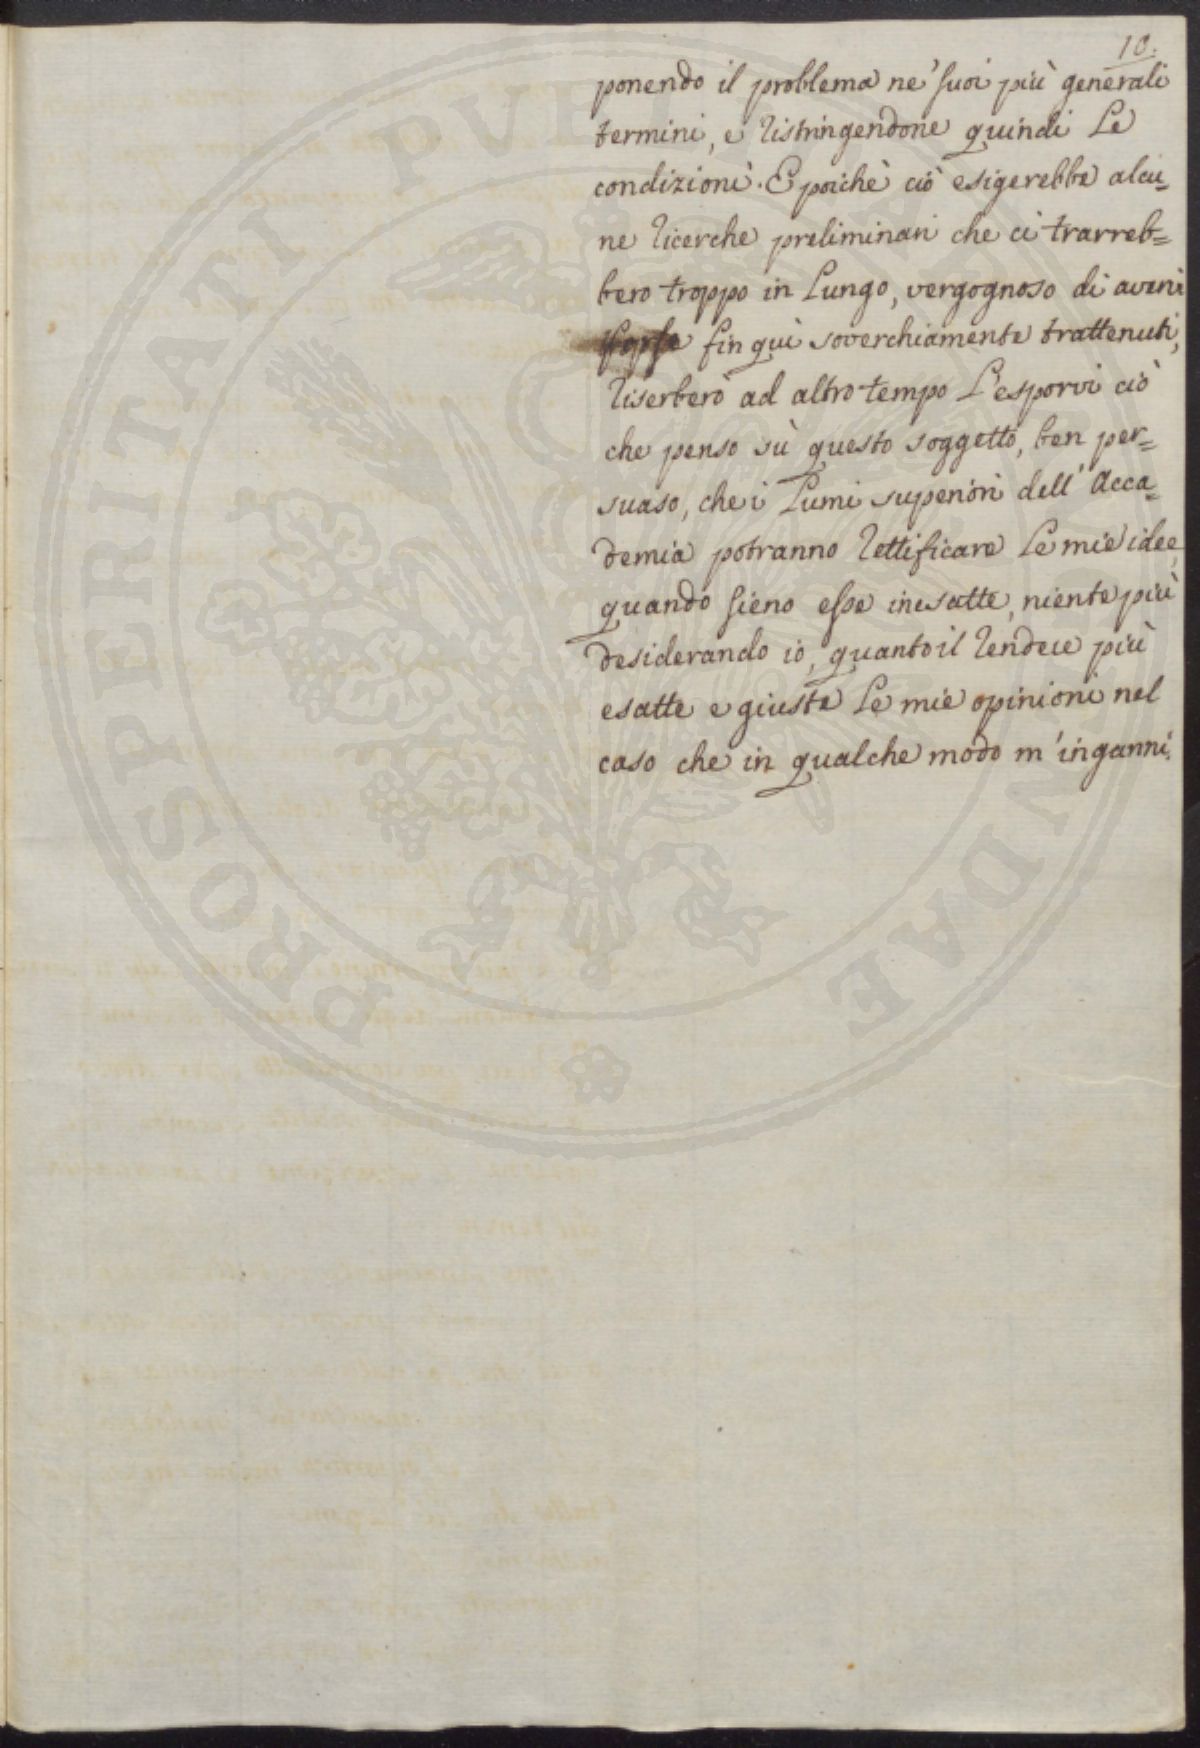 10.
ponendo il problema ne' suoi più generali
termini, e ristringendone quindi le
condizioni. E poichè ciò esigerebbe alcu=
ne ricerche preliminari che ci trarreb=
bero troppo in lungo, vergognoso di avervi
forse fin quì soverchiamente trattenuti,
riserberò ad altro tempo l'esporvi ciò
che penso sù questo soggetto, ben per=
suaso, che i lumi superiori dell' Acca=
demia potranno rettificare le mie idee,
quando sieno esse inesatte, niente più
desiderando io, quanto il rendere più
esatte e giuste le mie opinioni nel
caso che in qualche modo m'inganni.
PROSPERITATI PUBLICAE AUGENDAE